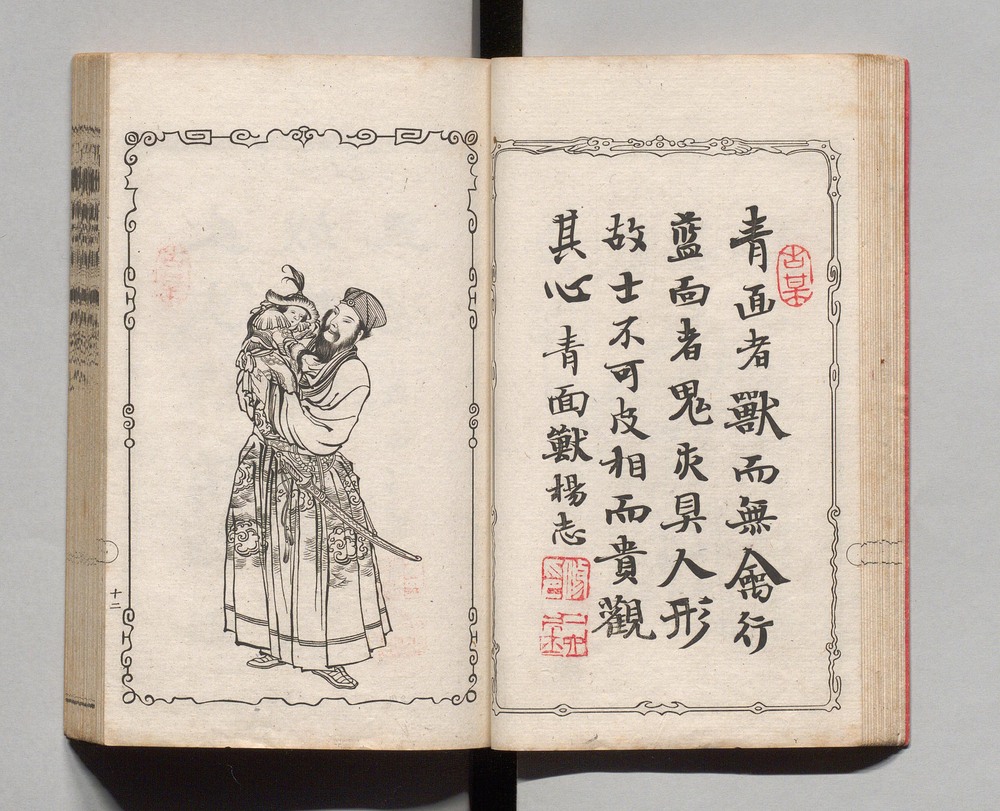 青面者獸而無禽行
藍面者鬼亦具人形
故士不可皮相而貴觀
其心 青面獸楊志
十二